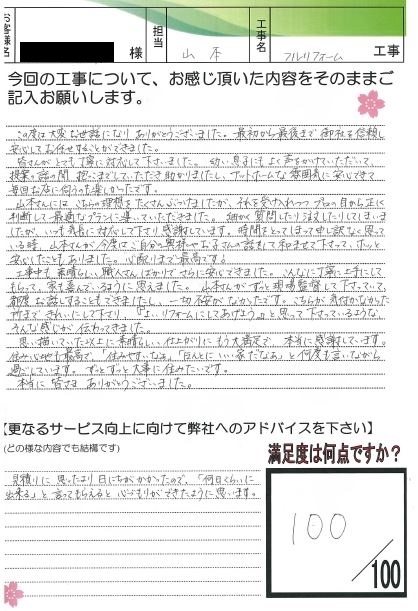 お客様名 様 担当 山本 工事名 フルリフォーム 工事
今回の工事について、お感じ頂いた内容をそのままご
記入お願いします。
この度は大変お世話になり ありがとうございました。最初から最後まで 御社を信頼し
安心してお任せすることができました。
皆さんがとても丁寧に対応して下さいました。幼い息子にも よく声をかけていただいて、
授業の話の間 抱っこまでしていただき 助かりました。アットホームな雰囲気に安心できて
毎回お店に伺うのも楽しかったです。
山本さんには、こちらの理想をたくさんぶつけましたが、それを受け入れつつ プロの目から正に
判断して最適なプランに導いていただきました。細かく質問したりうるさくしたりしてしまいま
したが、いつも気長に対応して下さり感謝しています。時間をとってしまって申し訳なく思って
いる時、山本さんが今度はご自分の興味やお子さんの話をして和ませて下さって、ホッと
安心したこともありました。心配りまで最高です。
工事中も 素晴らしい職人さんばかりで さらに安心できました。こんなに丁寧に上手にして
もらって、家も喜んでいるように思えました。山本さんがずっと現場監督して下さっていて、
都度お話しすることもできましたし、一切不安がなかったです。こちらが気付かなかった
所まで きれいにして下さり、「よいリフォームにしてあげよう」と思って下さっているような、
そんな感じが伝わってきました。
思い描いていた以上に素晴らしい仕上がりに もう大満足で、本当に感謝しています。
住み心地も最高で、「住みやすいなぁ」「ほんとに いい家だなぁ」と何度も言いながら
過ごしています。ずっとずっと大事に住みたいです。
本当に 皆さま ありがとうございました。
【更なるサービス向上に向けて弊社へのアドバイスを下さい】
(どの様な内容でも結構です)
満足度は何点ですか?
見積りに 思ったより 日にちがかかったので、「何日くらいに
出来る」と 言ってもらえると 心づもりができたように思います。
100
/100